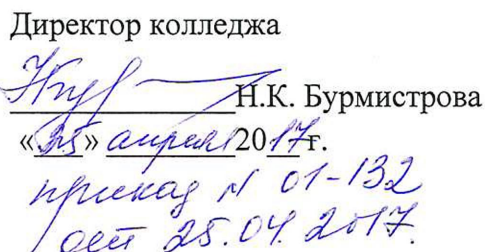 Директор колледжа
Н.К. Бурмистрова
«25» апреля 2017 г.
приказ N 01-132
от 25.04.2017.